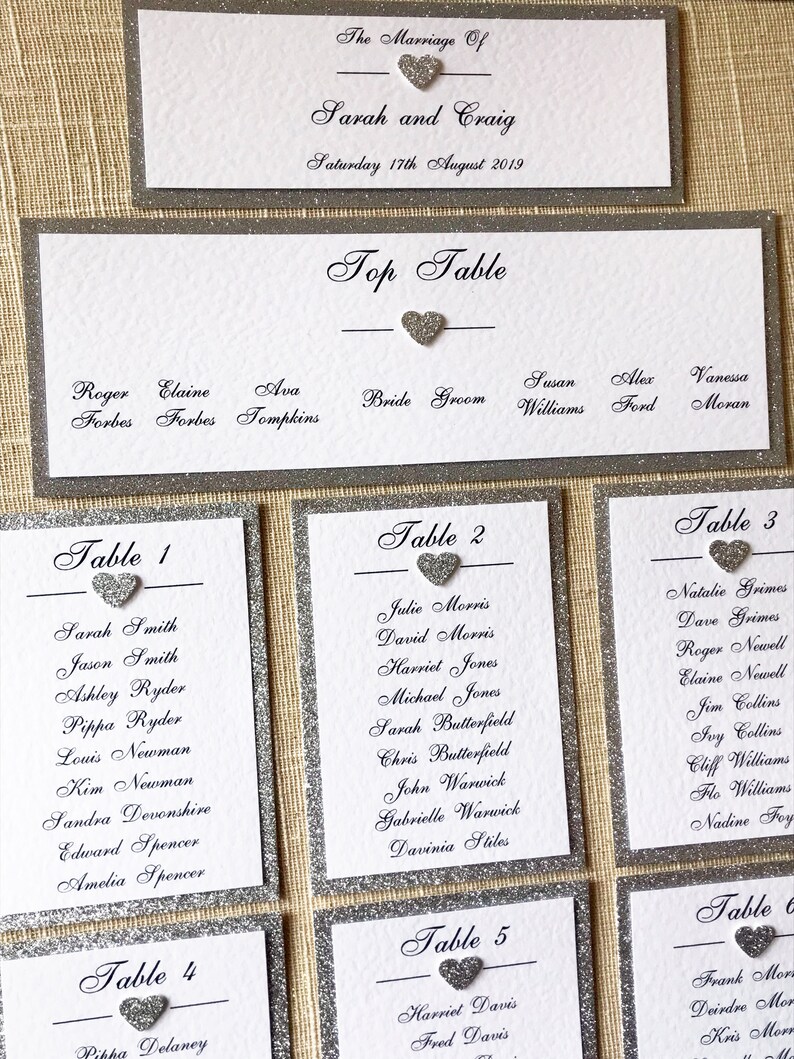 The Marriage Of
Sarah and Craig
Saturday 17th August 2019
Top Table
Roger Forbes
Elaine Forbes
Ava Tompkins
Bride
Groom
Susan Williams
Alex Ford
Vanessa Moran
Table 1
Sarah Smith
Jason Smith
Ashley Ryder
Pippa Ryder
Louis Newman
Kim Newman
Sandra Devonshire
Edward Spencer
Amelia Spencer
Table 2
Julie Morris
David Morris
Harriet Jones
Michael Jones
Sarah Butterfield
Chris Butterfield
John Warwick
Gabrielle Warwick
Davinia Stiles
Table 3
Natalie Grimes
Dave Grimes
Roger Newell
Elaine Newell
Jim Collins
Ivy Collins
Cliff Williams
Flo Williams
Nadine Foy
Table 4
Pippa Delaney
Table 5
Harriet Davis
Fred Davis
Table 6
Frank
Deirdre
Kris